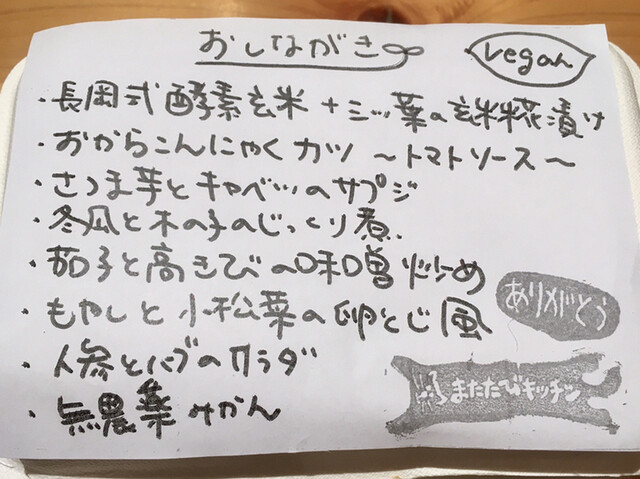 おしながき
vegan
・長岡式酵素玄米+三ッ葉の玄米糀漬け
・おからこんにゃくカツ ～トマトソース～
・さつま芋とキャベツのサブジ
・冬瓜と木の子のじっくり煮.
・茄子と高きびの味噌炒め
・もやしと小松菜の卵とじ風
・人参とハブのサラダ
・無農薬みかん
ありがとう
またたびキッチン